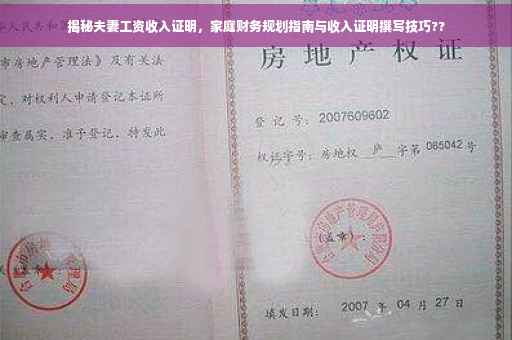 揭秘夫妻工资收入证明，家庭财务规划指南与收入证明撰写技巧??
市房地产管理法》及有关法
定，对权利人申请登记本证所
审查属实，准予登记，特发此
房地产权证
登记号：2007609602
权证字号：房地权 庐 字第 085042 号
(盖章)：
填发日期：2007 年 04 月 27 日